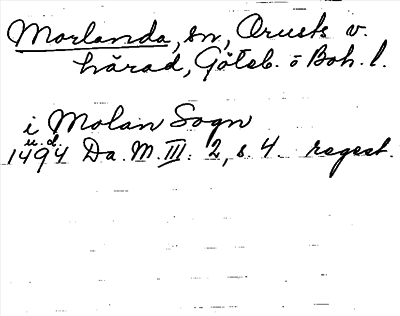 Morlanda, sn, Orusts v.
härad, Göteb. o Boh. l.
i Molan Sogn
u.d.
1494 Da. M. III. 2, s. 4. regest.